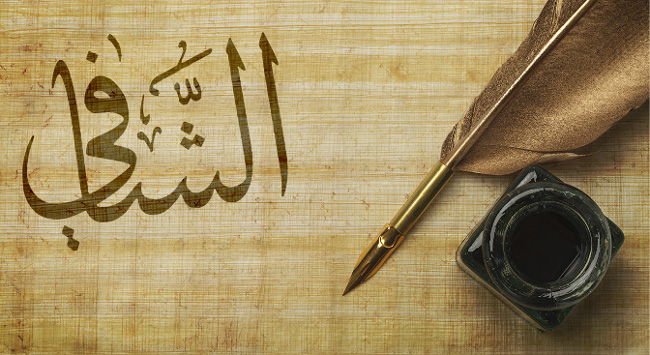 الشافي